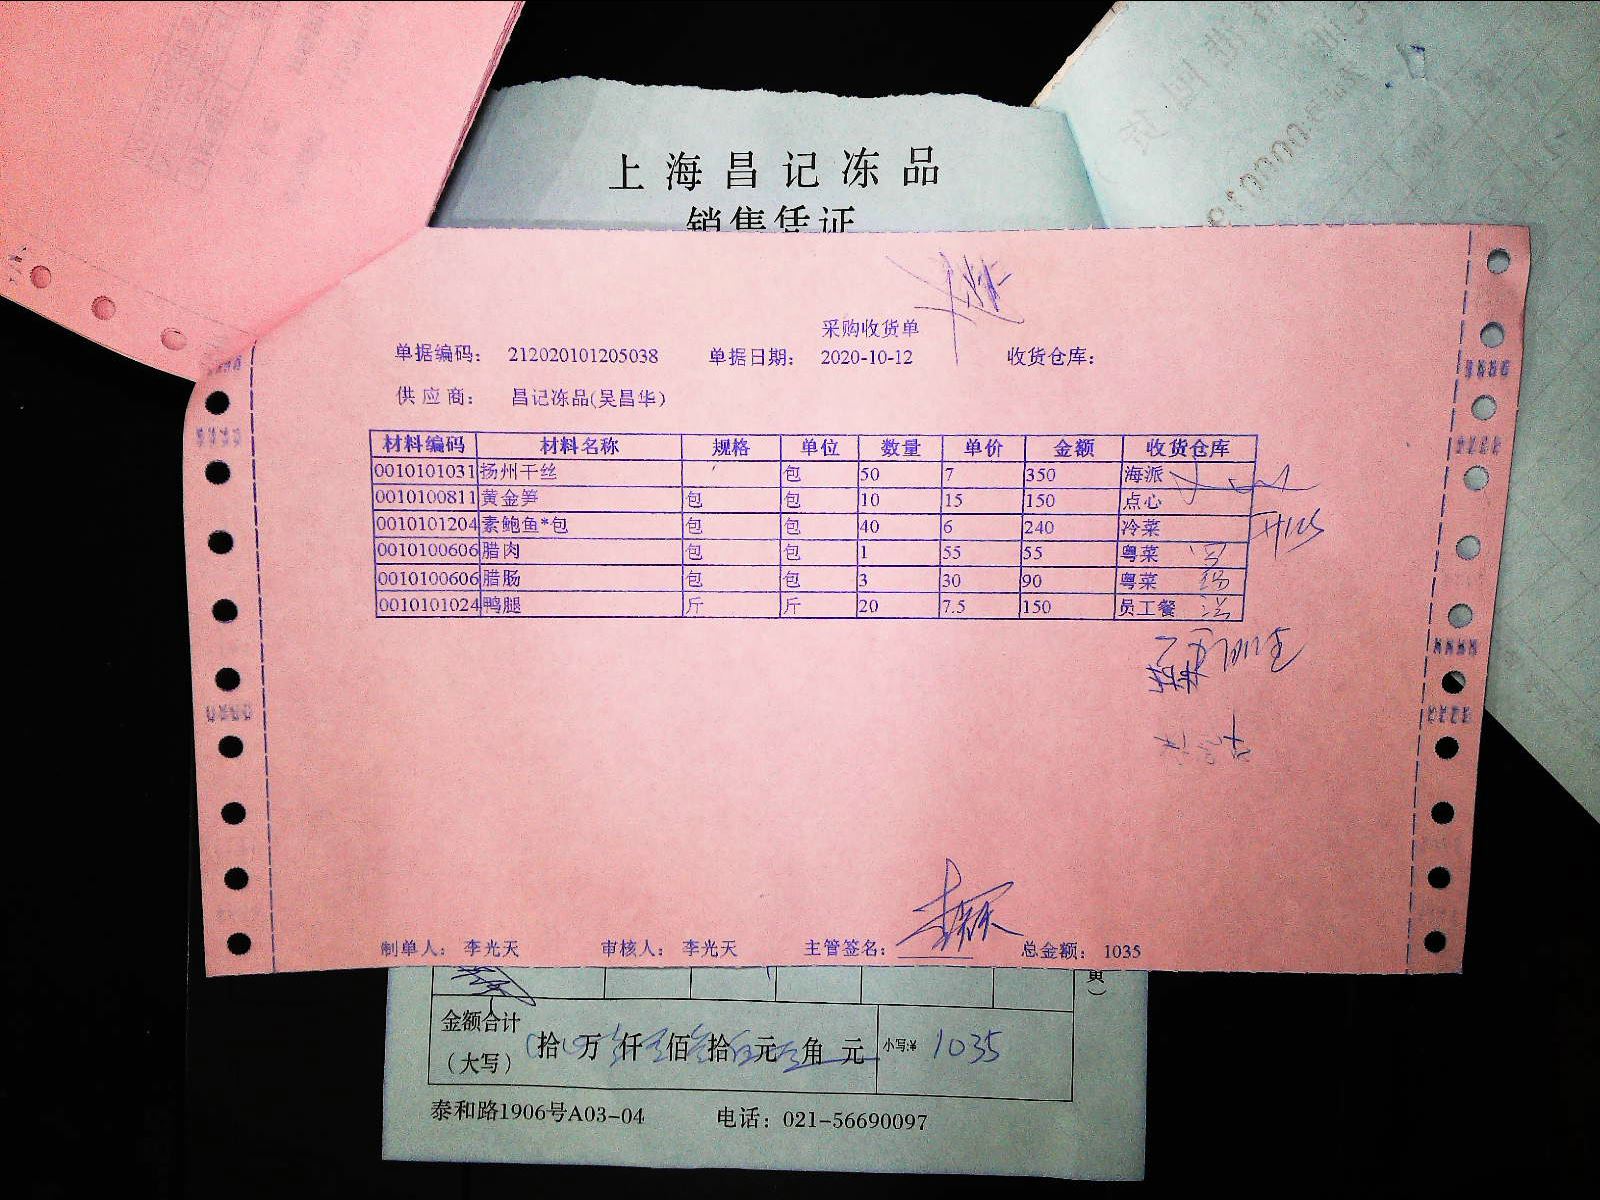 上海昌记冻品
销售凭证
采购收货单
单据编码： 212020101205038 单据日期： 2020-10-12 收货仓库：
供应商： 昌记冻品(吴昌华）
材料编码 材料名称 规格 单位 数量 单价 金额 收货仓库
0010101031 扬州干丝 包 50 7 350 海派
0010100811 黄金笋 包 包 10 15 150 点心
0010101204 素鲍鱼*包 包 包 40 6 240 冷菜
0010100606 腊肉 包 包 1 55 55 粤菜
0010100606 腊肠 包 包 3 30 90 粤菜
0010101024 鸭腿 斤 斤 20 7.5 150 员工餐
制单人： 李光天 审核人： 李光天 主管签名： 总金额： 1035
金额合计
（大写） 拾 万 仟 佰 拾 元 角 元 小写:¥ 1035
泰和路1906号A03-04 电话：021-56690097